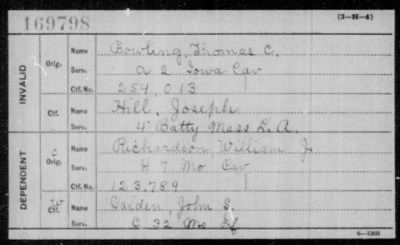 169798
(3-H-4)
INVALID
Orig.
Name Bowling, Thomas C.
Serv. A 2 Iowa Cav
Ctf. No. 254,013
Ctf.
Name Hill, Joseph
Serv. 4" Batty Mass L. A.
DEPENDENT
Orig.
Name Richardson, William J.
Serv. H 7 Mo Cav
Ctf. No. 123,789
Ctf.
Name John S.
Serv. C 32 Mo
6-1303